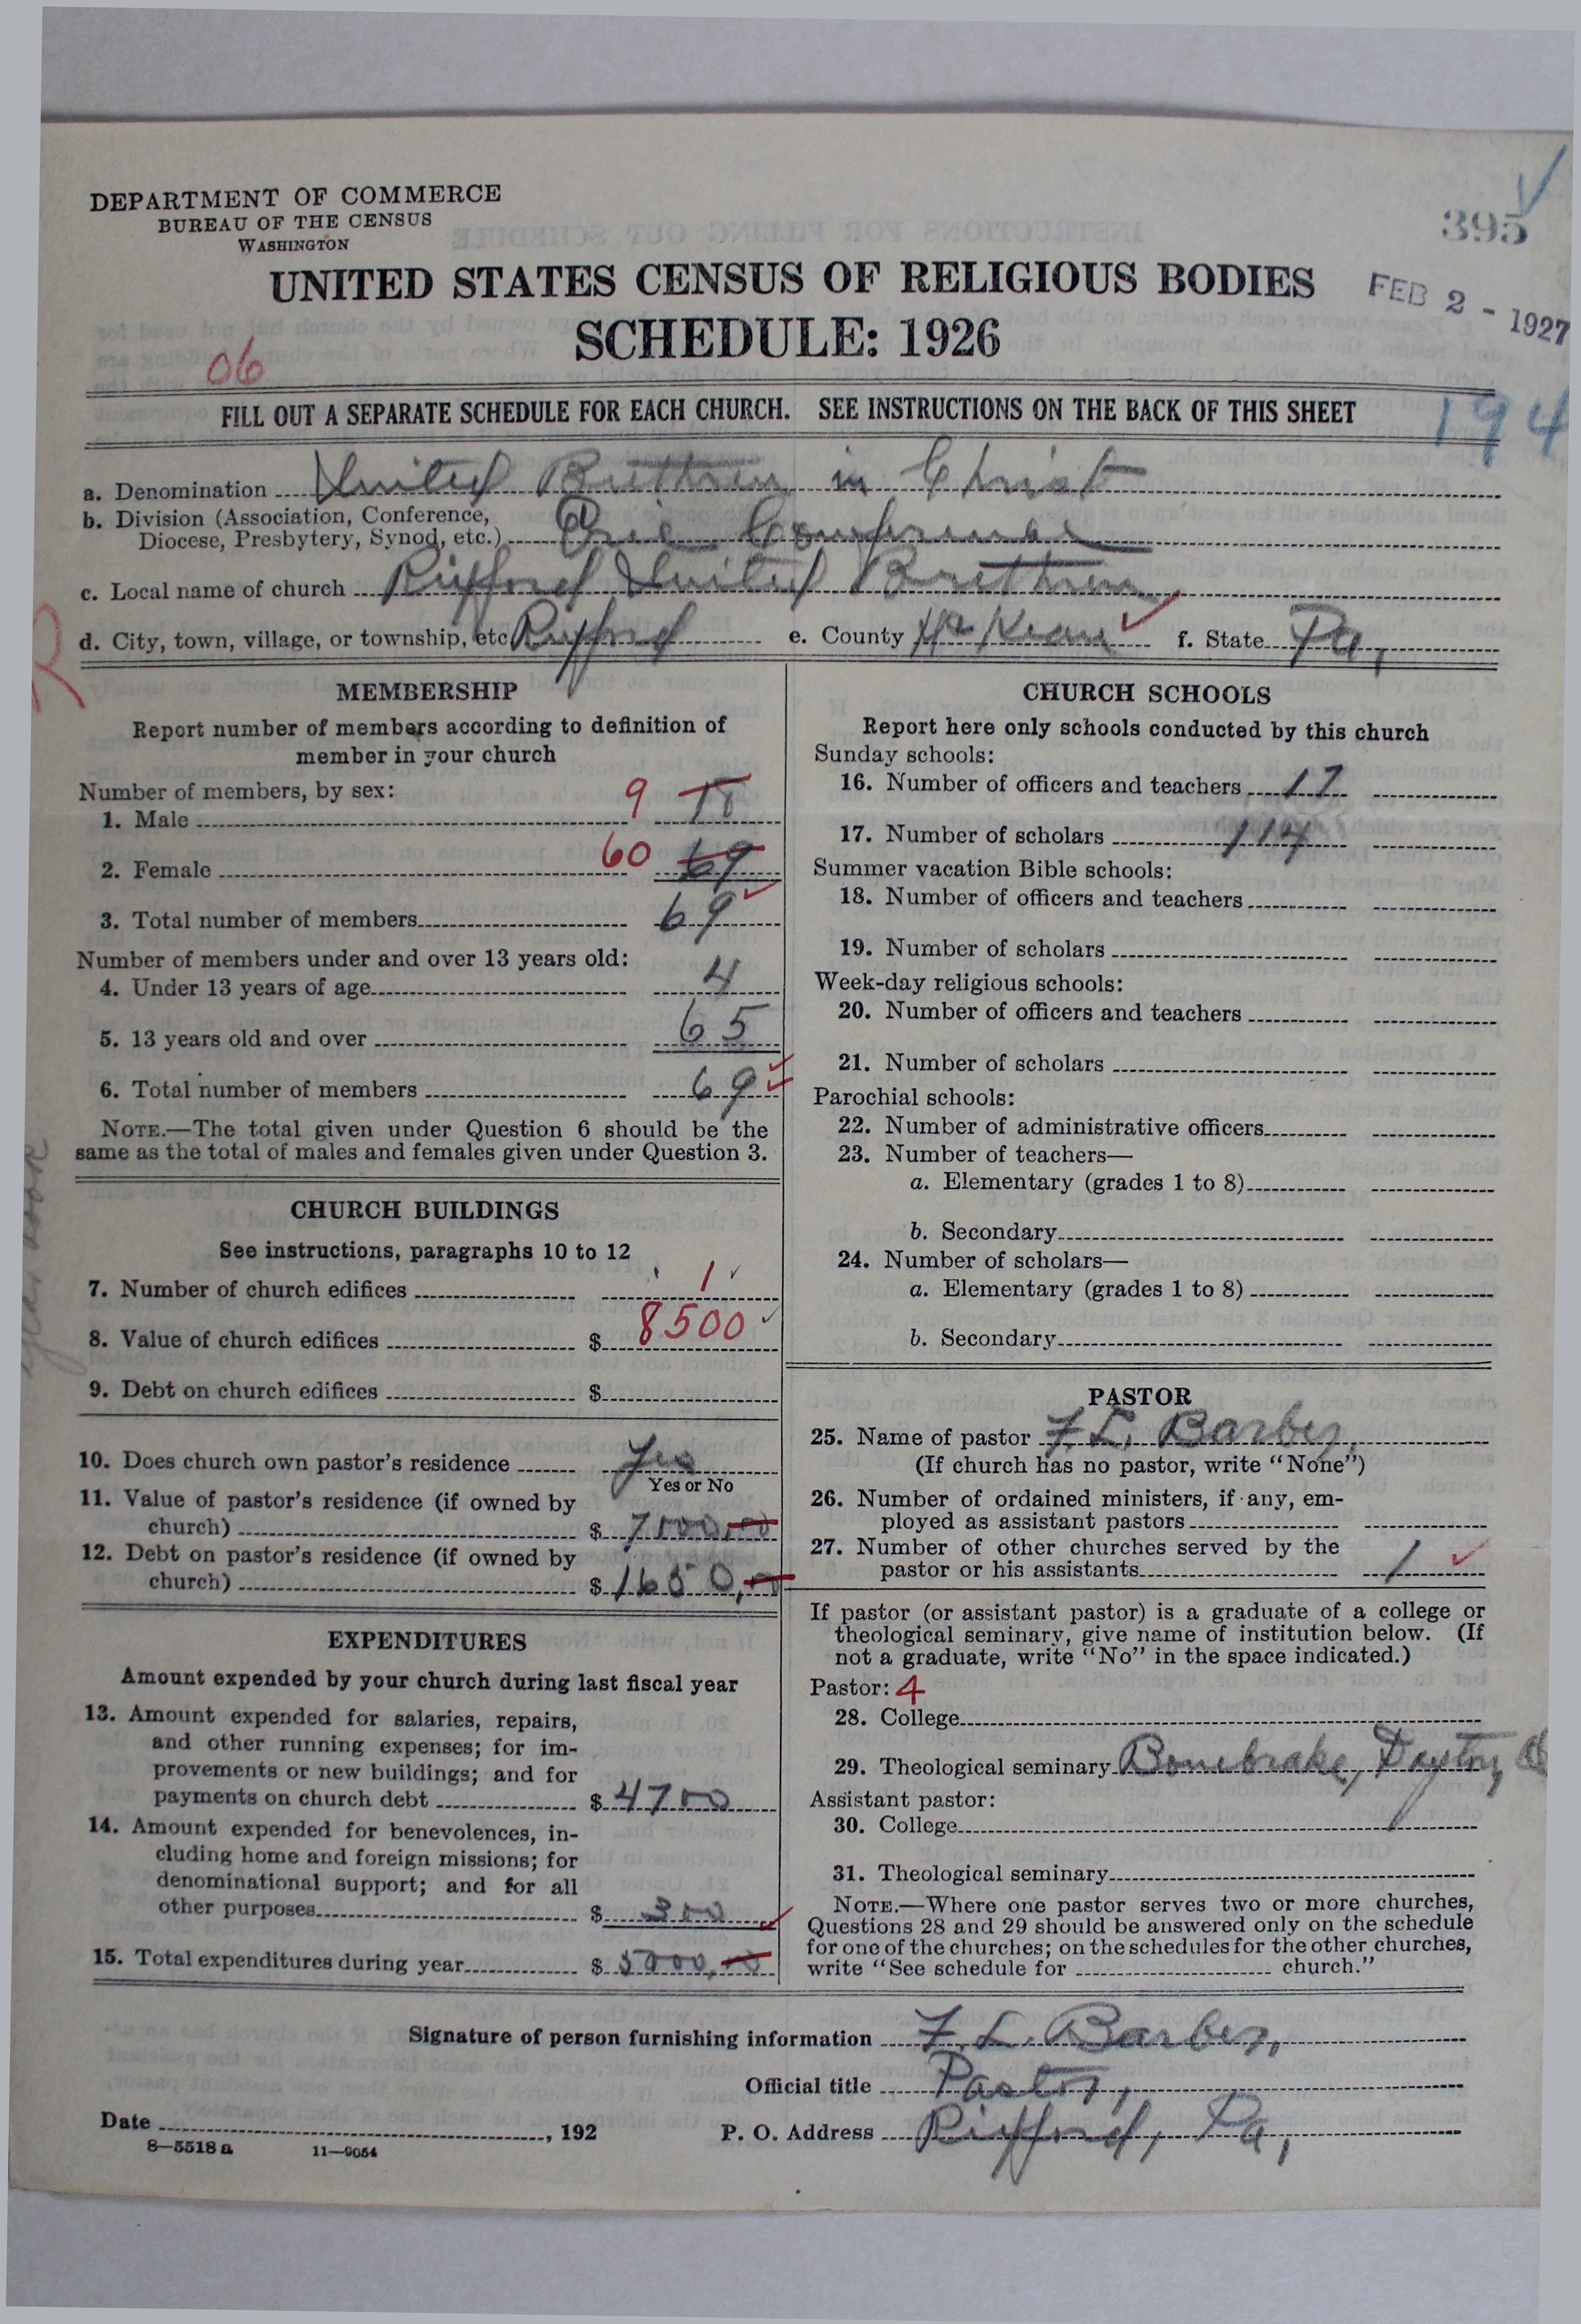 DEPARTMENT OF COMMERCE
BUREAU OF THE CENSUS
WASHINGTON
395
UNITED STATES CENSUS OF RELIGIOUS BODIES
FEB 2 - 1927
SCHEDULE: 1926
06
FILL OUT A SEPARATE SCHEDULE FOR EACH CHURCH. SEE INSTRUCTIONS ON THE BACK OF THIS SHEET
194
a. Denomination United Brethren in Christ
b. Division (Association, Conference,
Diocese, Presbytery, Synod, etc.) Erie Conference
c. Local name of church Rixford United Brethren
d. City, town, village, or township, etc. Rixford e. County McKean f. State Pa,
MEMBERSHIP
Report number of members according to definition of
member in your church
Number of members, by sex:
1. Male 9
2. Female 60 69
3. Total number of members 69
Number of members under and over 13 years old:
4. Under 13 years of age 4
5. 13 years old and over 65
6. Total number of members 69
NOTE.—The total given under Question 6 should be the
same as the total of males and females given under Question 3.
CHURCH BUILDINGS
See instructions, paragraphs 10 to 12
7. Number of church edifices 1
8. Value of church edifices $ 8500
9. Debt on church edifices $
10. Does church own pastor's residence Yes
Yes or No
11. Value of pastor's residence (if owned by
church) $ 7000,00
12. Debt on pastor's residence (if owned by
church) $ 1650,00
EXPENDITURES
Amount expended by your church during last fiscal year
13. Amount expended for salaries, repairs,
and other running expenses; for im-
provements or new buildings; and for
payments on church debt $ 4700
14. Amount expended for benevolences, in-
cluding home and foreign missions; for
denominational support; and for all
other purposes $ 300
15. Total expenditures during year $ 5000,00
CHURCH SCHOOLS
Report here only schools conducted by this church
Sunday schools:
16. Number of officers and teachers 17
17. Number of scholars 114
Summer vacation Bible schools:
18. Number of officers and teachers
19. Number of scholars
Week-day religious schools:
20. Number of officers and teachers
21. Number of scholars
Parochial schools:
22. Number of administrative officers
23. Number of teachers—
a. Elementary (grades 1 to 8)
b. Secondary
24. Number of scholars—
a. Elementary (grades 1 to 8)
b. Secondary
PASTOR
25. Name of pastor F. L. Barber,
(If church has no pastor, write "None")
26. Number of ordained ministers, if any, em-
ployed as assistant pastors
27. Number of other churches served by the
pastor or his assistants 1
If pastor (or assistant pastor) is a graduate of a college or
theological seminary, give name of institution below. (If
not a graduate, write "No" in the space indicated.)
Pastor: 4
28. College
29. Theological seminary Bonebrake, Dayton, O
Assistant pastor:
30. College
31. Theological seminary
NOTE.—Where one pastor serves two or more churches,
Questions 28 and 29 should be answered only on the schedule
for one of the churches; on the schedules for the other churches,
write "See schedule for church."
Signature of person furnishing information F. L. Barber,
Official title Pastor,
Date , 192 P. O. Address Rixford, Pa,
8—5518 a 11—9054